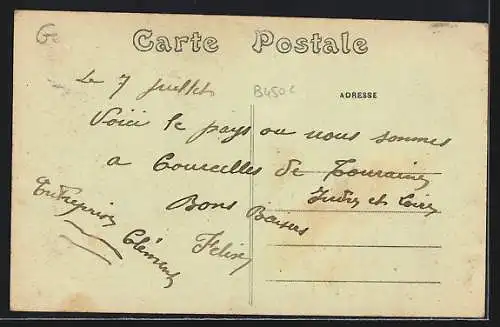 Carte Postale
Le 7 juillet
B450c
ADRESSE
Voici le pays ou nous sommes
a Courcelles de Touraine
Indre et Loire
Bons Baisers
Entreprise
Clément
Felix